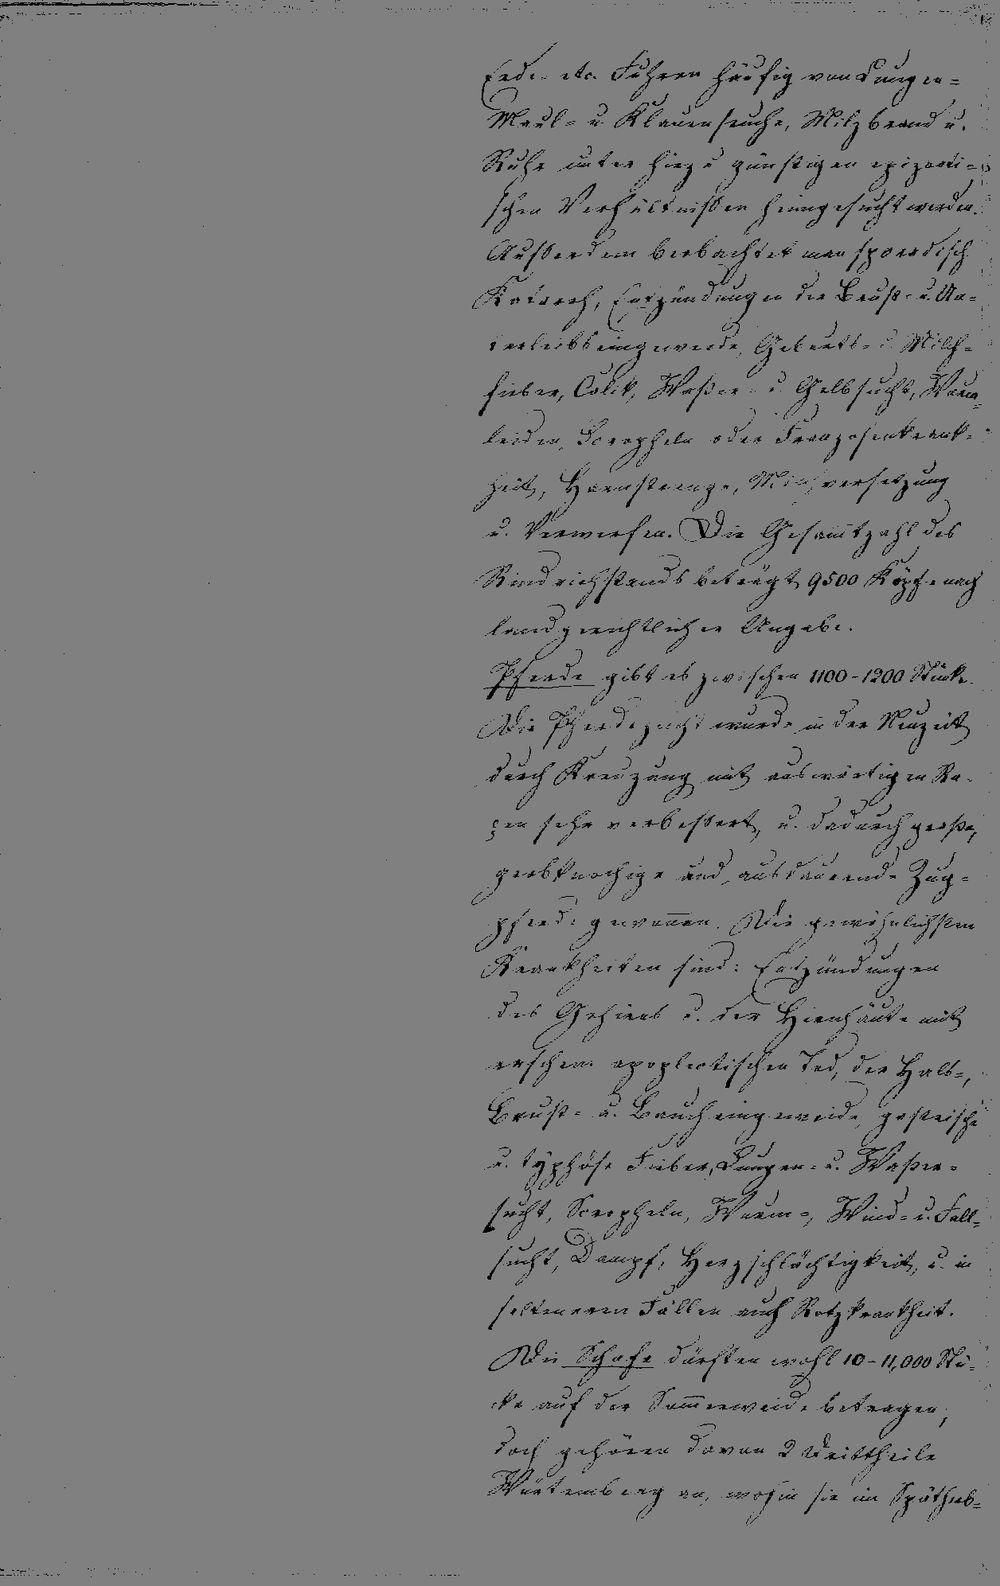 Erde etc. Führen häufig von Lungen-
Maul- u. Klauenseuche, Milzbrand u.
Ruhr unter hiezu günstigen epizooti-
schen Verhältnißen heimgesucht werden.
Außerdem beobachtet man sporadisch
Katarrh, Entzündungen der Brust- u. Un-
terleibseingeweide, Geburts- u. Milch-
fieber, Colik, Waßer- u. Gelbsucht, Wurm-
leiden, Scropheln oder Franzosenkrank-
heit, Harnstrenge, Milchversetzung
u. Verwerfen. Die Gesam̄tzahl des
Rindviehstands beträgt 9500 Köpfe nach
landgerichtlicher Angabe.
Pferde gibt es zwischen 1100-1200 Stücke.
Die Pferdezucht wurde in der Neuzeit
durch Kreuzung mit auswärtigen Ra-
çen sehr verbeßert, u. dadurch große,
grobknochige und ausdauernde Zug-
pferde gewon̄en. Die gewöhnlichsten
Krankheiten sind: Entzündungen
des Gehirns u. der Hirnhäute mit
apoplectischen Tod, der Hals-,
Brust- u. Baucheingeweide, gastrische
u. typhöse Fieber, Lungen- u. Waßer-
sucht, Scropheln, Wurm-, Wind- u. Fall-
sucht, Dampf, Herzschlächtigkeit, u. in
seltenern Fällen auch Rotzkrankheit.
Die Schafe dürften wohl 10-11,000 Stü-
cke auf der Som̄erweide betragen,
doch gehören davon 2 Drittheile
Würtemberg an, wohin sie im Späthrb-